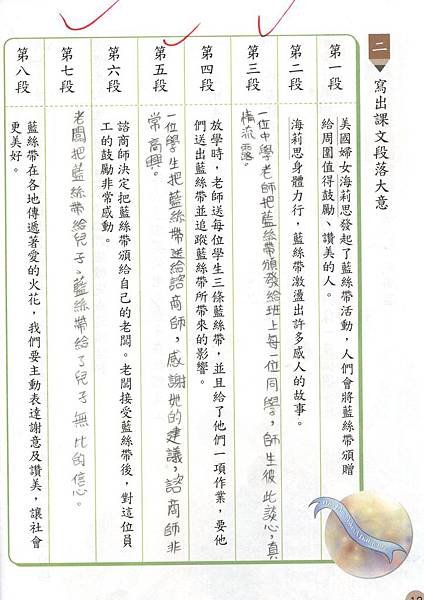 二 寫出課文段落大意
第一段
美國婦女海莉思發起了藍絲帶活動，人們會將藍絲帶頒贈
給周圍值得鼓勵、讚美的人。
第二段
海莉思身體力行，藍絲帶激盪出許多感人的故事。
第三段
一位中學老師把藍絲帶頒發給班上每一位同學，師生彼此談心，真
情流露。
第四段
放學時，老師送每位學生三條藍絲帶，並且給了他們一項作業，要他
們送出藍絲帶並追蹤藍絲帶所帶來的影響。
第五段
一位學生把藍絲帶送給諮商師，感謝她的建議，諮商師非
常高興。
第六段
諮商師決定把藍絲帶頒給自己的老闆。老闆接受藍絲帶後，對這位員
工的鼓勵非常感動。
第七段
老闆把藍絲帶給兒子，藍絲帶給了兒子無比的信心。
第八段
藍絲帶在各地傳遞著愛的火花，我們要主動表達謝意及讚美，讓社會
更美好。